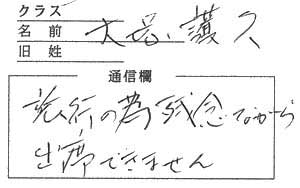 クラス
名前 大 護久
旧姓
通信欄
旅行の為残念ながら
出席できません